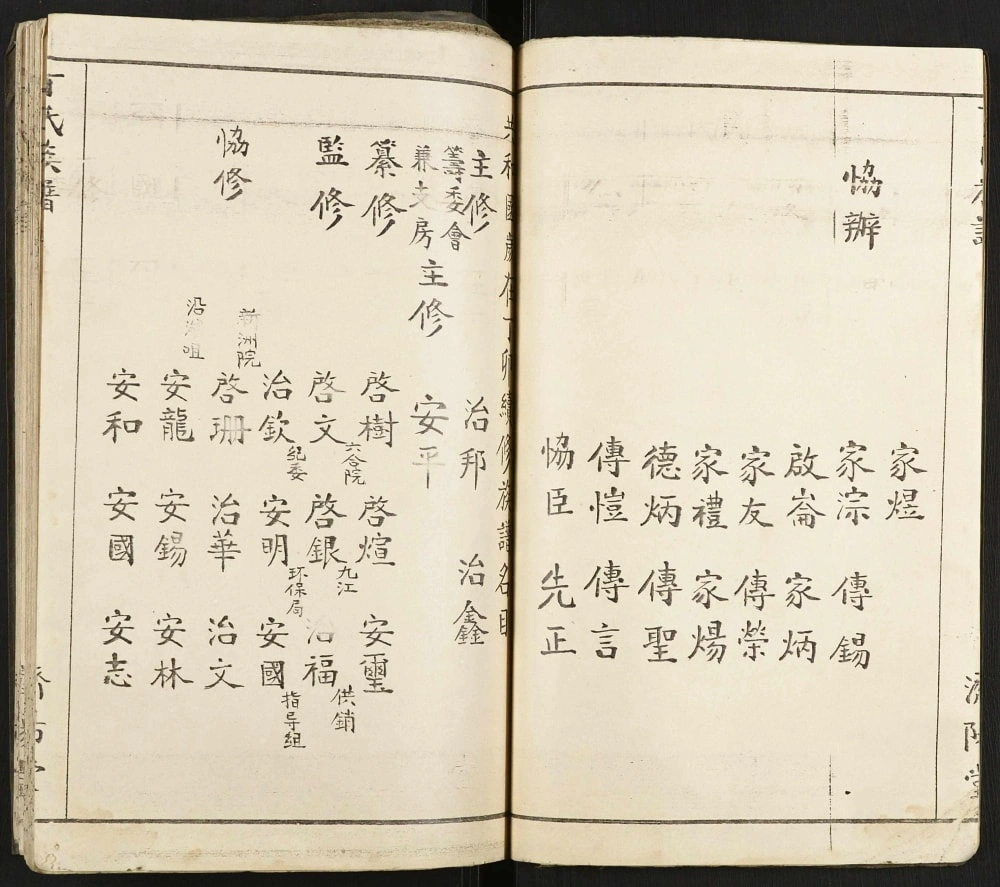 家煜
恊辦 家淙 傳錫
啟崙 家炳
家友 傳榮
家禮 家煬
德炳 傳聖
傳愷 傳言
恊臣 先正
共和國歲在丁卯續修族譜名目
主修 治邦 治鑫
籌委會
兼支房主修 安平
纂修 啓樹 啓煊 安璽
六合院 九江 供銷
監修 啓文 啓銀 治福
紀委 环保局 指导組
治欽 安明 安國
新洲院
恊修 啓珊 治華 治文
沿湖咀
安龍 安錫 安林
安和 安國 安志